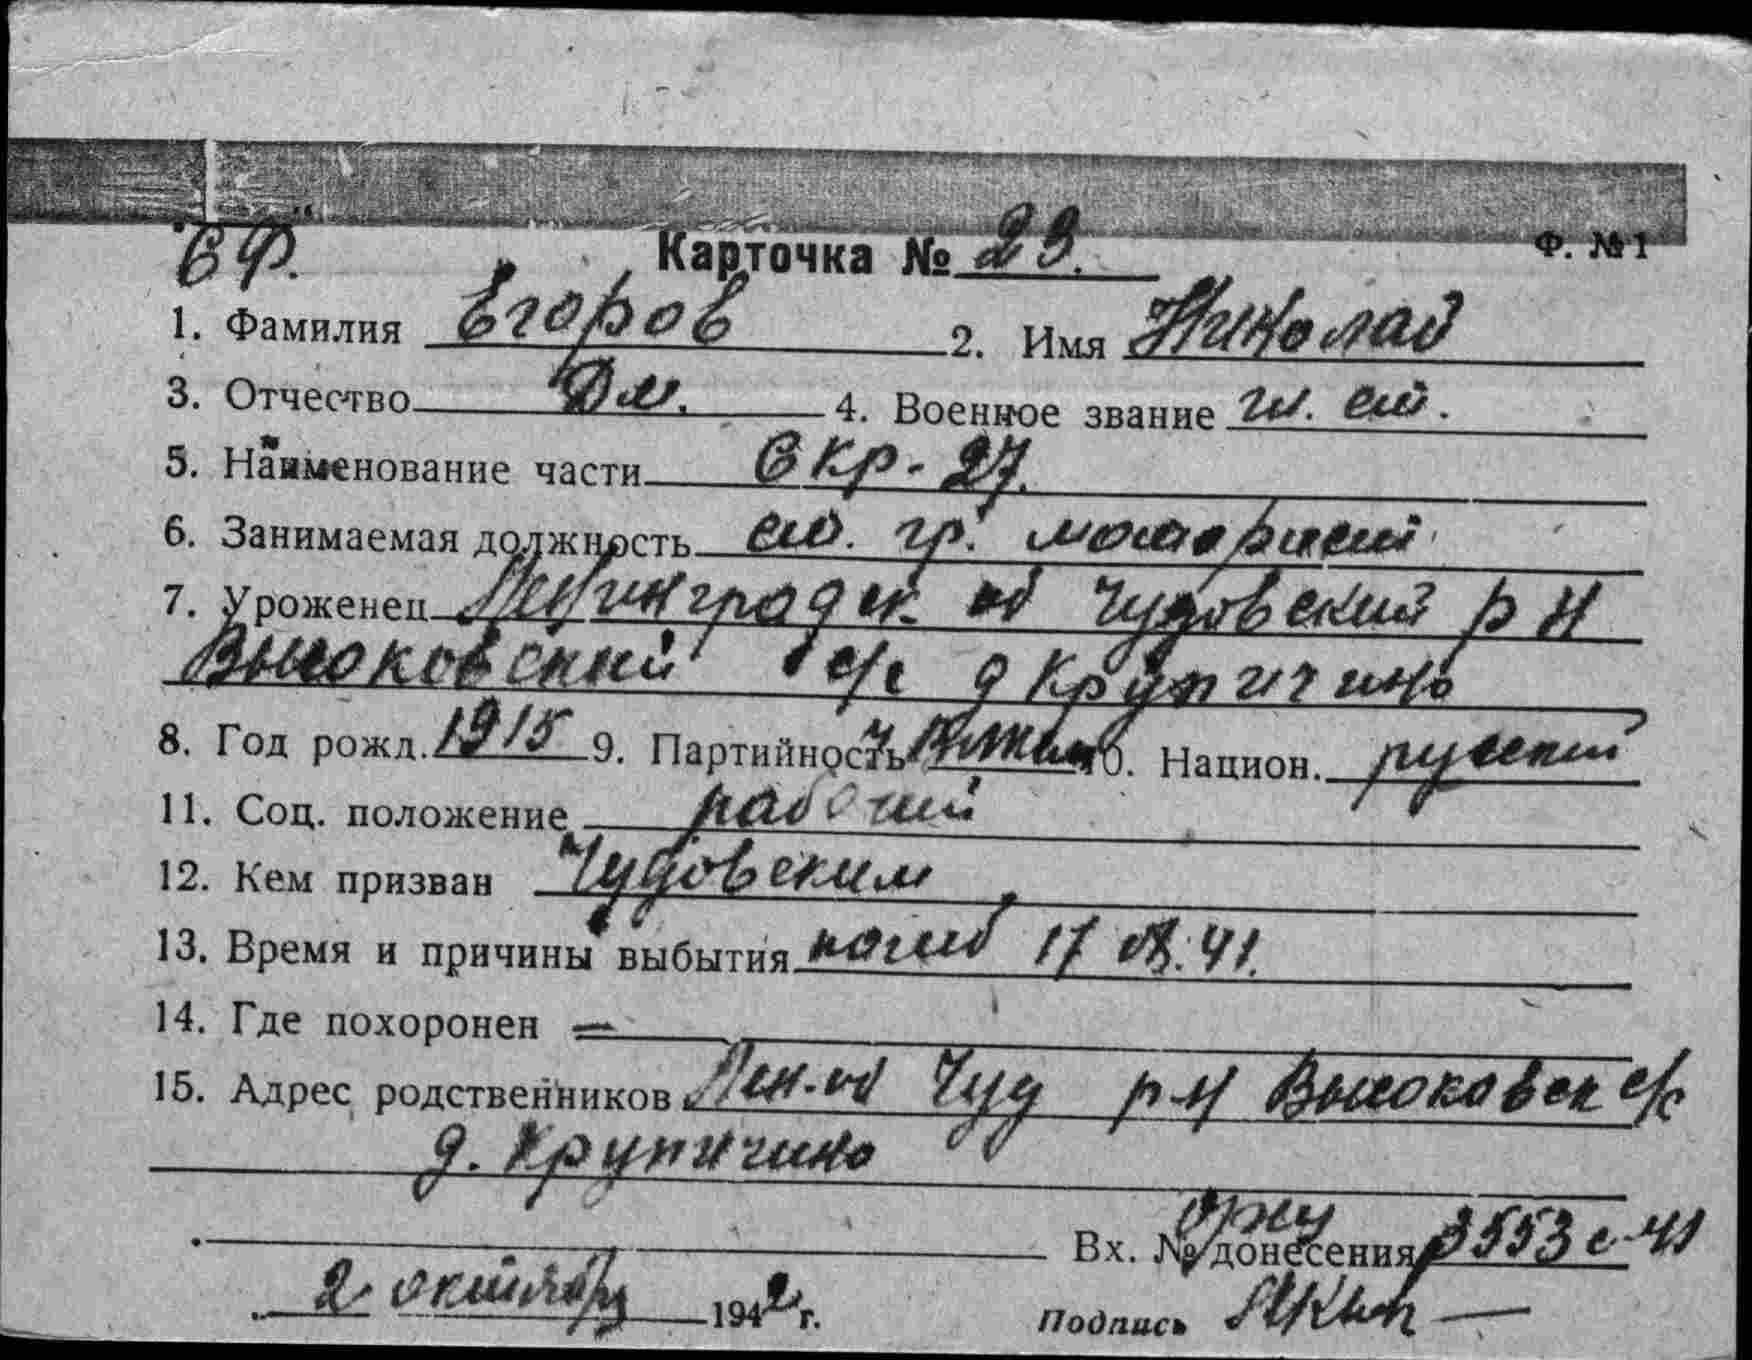 "СФ."
Карточка № 23. Ф. № 1
1. Фамилия Егоров 2. Имя Николай
3. Отчество Дм. 4. Военное звание гл. ст.
5. Наименование части СКР-27.
6. Занимаемая должность ст. гр. моторист
7. Уроженец Ленинградск. об Чудовский р н
Высоковский с/с д Крупичино
8. Год рожд. 1915 9. Партийность ч ВЛКСМ 10. Национ. русский
11. Соц. положение рабочий
12. Кем призван Чудовским
13. Время и причины выбытия погиб 17 08. 41.
14. Где похоронен —
15. Адрес родственников Лен. об Чуд р-н Высоковск с/с
д. Крупичино
Вх. № донесения 3553 с-41
2 октября 1942 г. Подпись